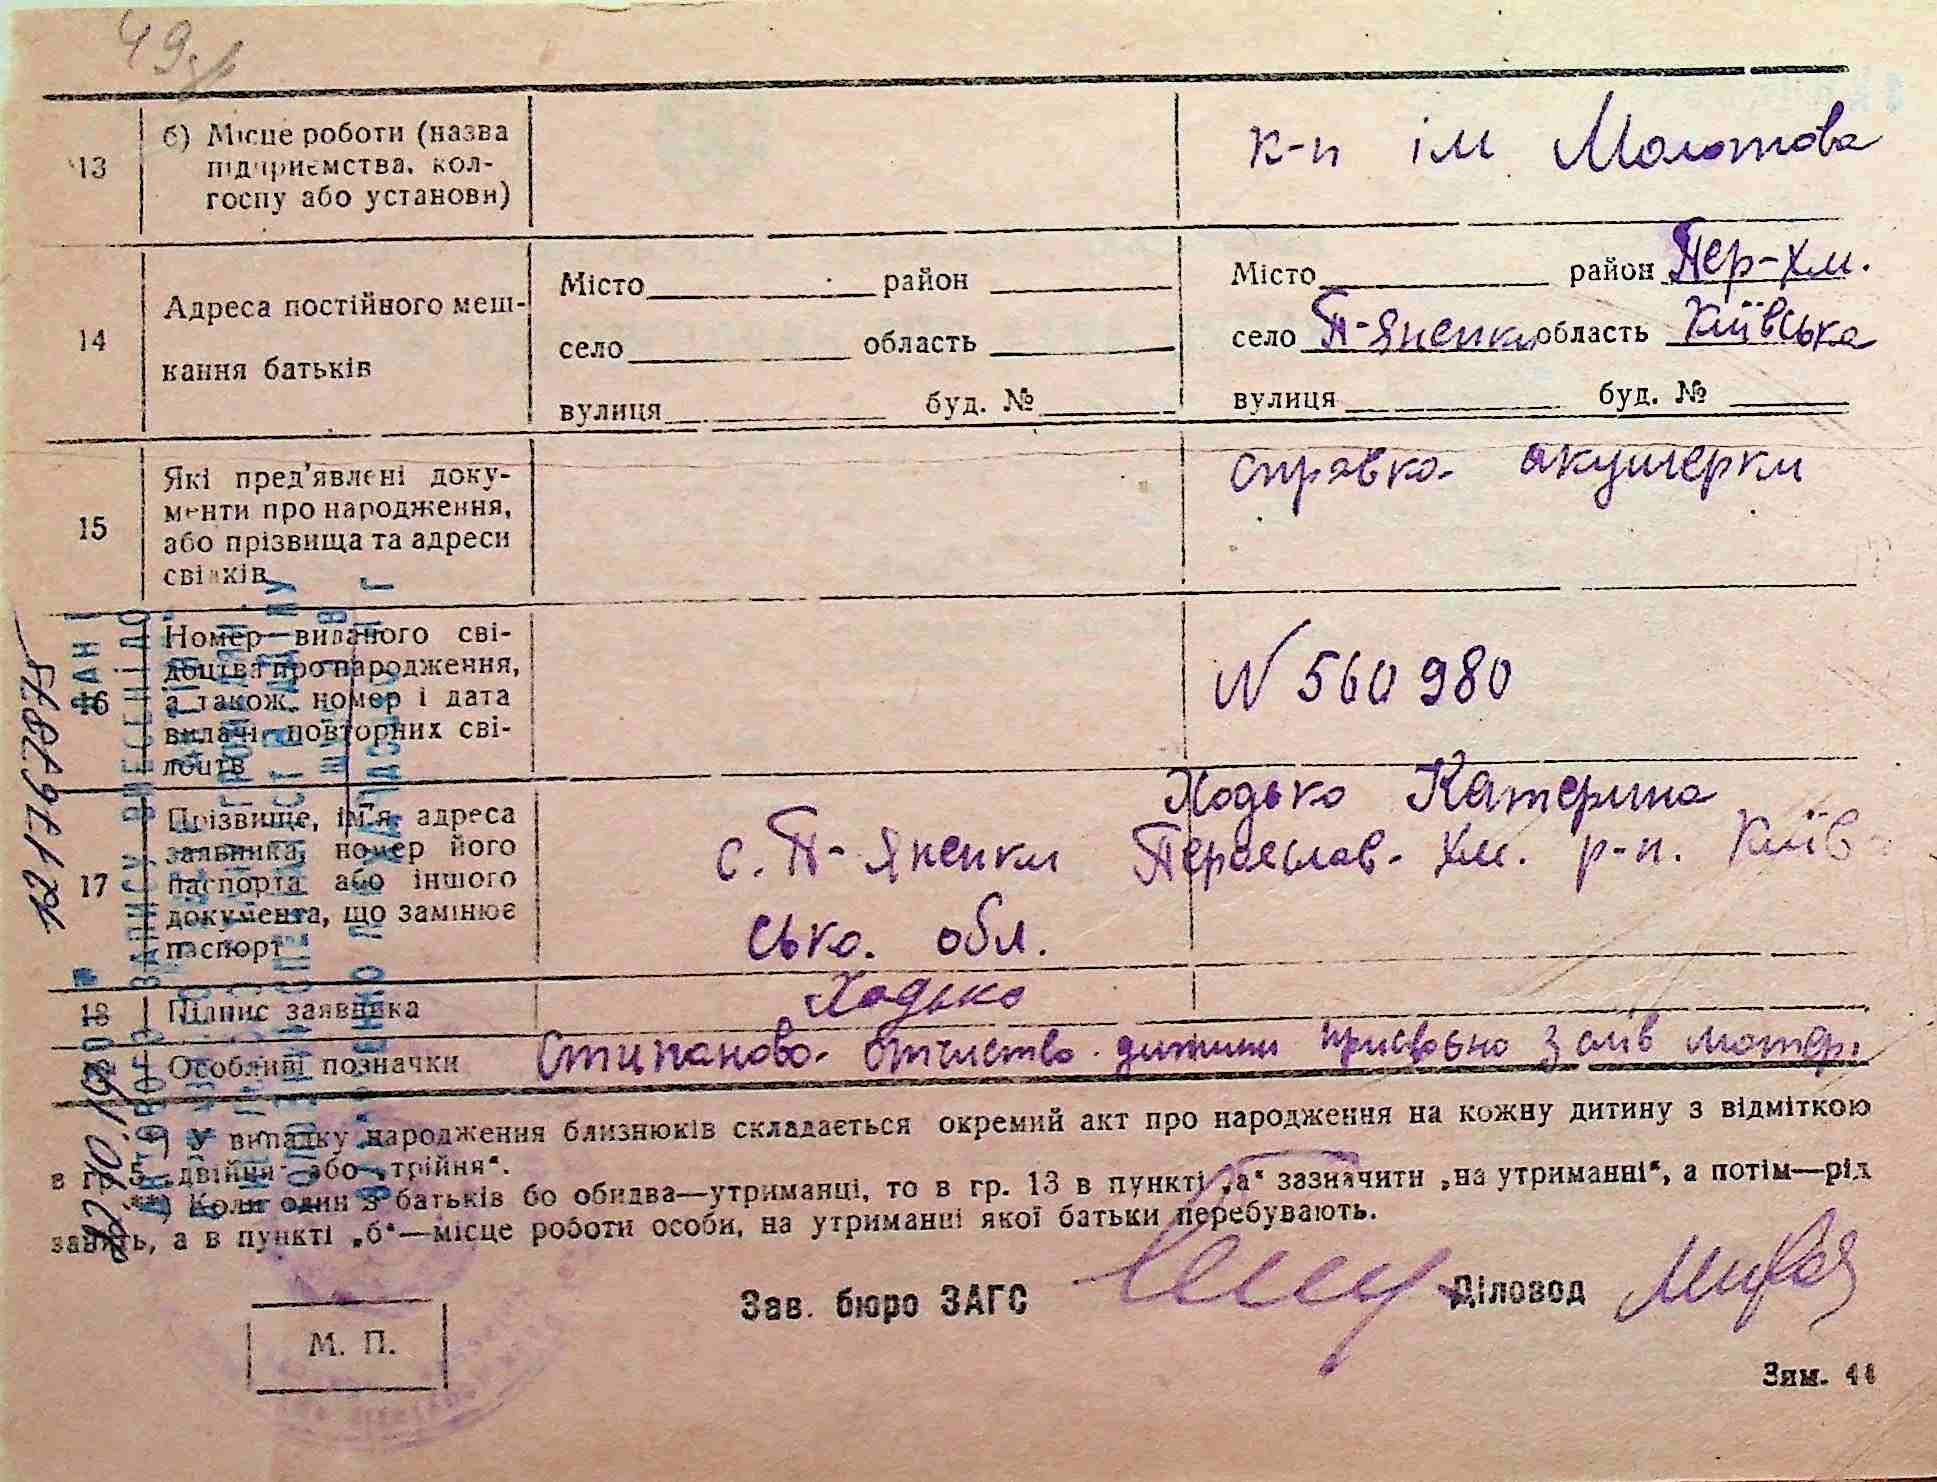 49
13
б) Місце роботи (назва
підприємства, кол-
госпу або установи)
к-п ім Молотова
14
Адреса постійного меш-
кання батьків
Місто район
село область
вулиця буд. №
Місто район Пер-Хм.
село П-Яненки область Київська
вулиця буд. №
15
Які пред'явлені доку-
менти про народження,
або прізвища та адреси
свідків
справка акушерки
16
Номер виданого сві-
доцтва про народження,
а також номер і дата
видачі повторних сві-
доцтв
N 560980
17
Прізвище, ім'я, адреса
заявника, номер його
паспорта або іншого
документа, що замінює
паспорт
Ходько Катерина
с. П-Яненки Переяслав-Хм. р-н. Київ
сько. обл.
18
Підпис заявника
Ходько
Особливі позначки
Стипаново отчиство дитини присвоєно з слів матері
*) У випадку народження близнюків складається окремий акт про народження на кожну дитину з відміткою
в гр. 5 „двійня“ або „трійня“.
**) Коли один з батьків бо обидва—утриманці, то в гр. 13 в пункті „а“ зазначити „на утриманні“, а потім—рід
занять, а в пункті „б“—місце роботи особи, на утриманні якої батьки перебувають.
Зав. бюро ЗАГС
Діловод
М. П.
Зям. 44